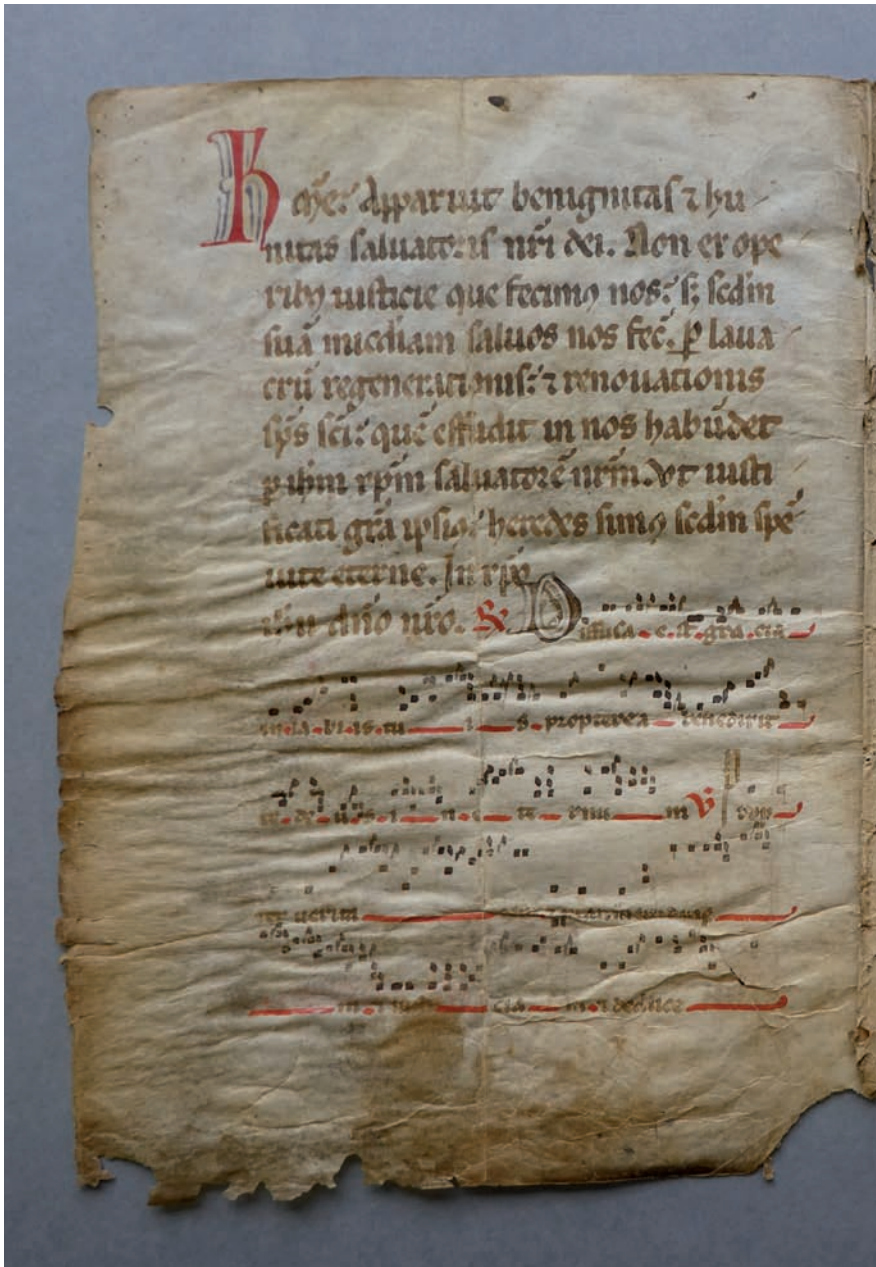 K me: Apparuit benignitas ⁊ hu
nitas saluatoris nr̄i dei. Non ex ope
ribꝫ iusticie que fecimꝰ nos: sꝫ scd̄m
suā mīcdiam saluos nos fec̄. ꝑ laua
crū regenerationis: ⁊ renouationis
sp̄s sc̄i: quē effudit in nos habūdet
ꝑ ih̄m xp̄m saluatorē nr̄m. Vt iusti
ficati gr̄a ipsiꝰ: heredes simꝰ scd̄m spē
uite eterne. In xp̄o
ih̄u dn̄o nr̄o. R Diffusa est gracia
in labiis tuis propterea benedixit
te deus in eternum V prop
ter ueritatem
et deducet